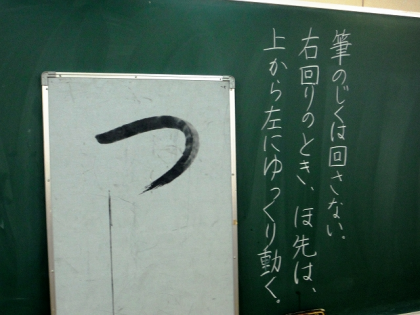 筆のじくは回さない。
右回りのとき、ほ先は、
上から左にゆっくり動く。
つ